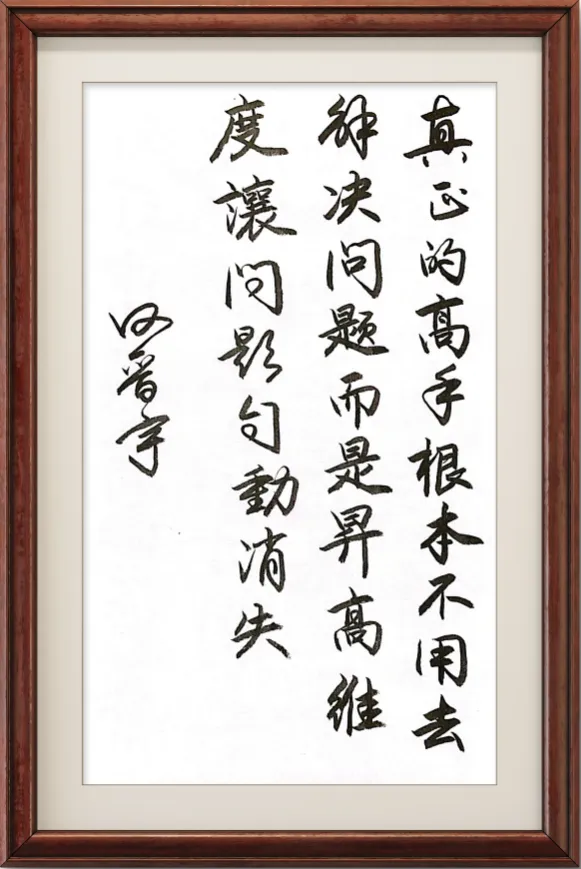 真正的高手根本不用去
解决问题而是昇高維
度讓问影句動消失
晋宇